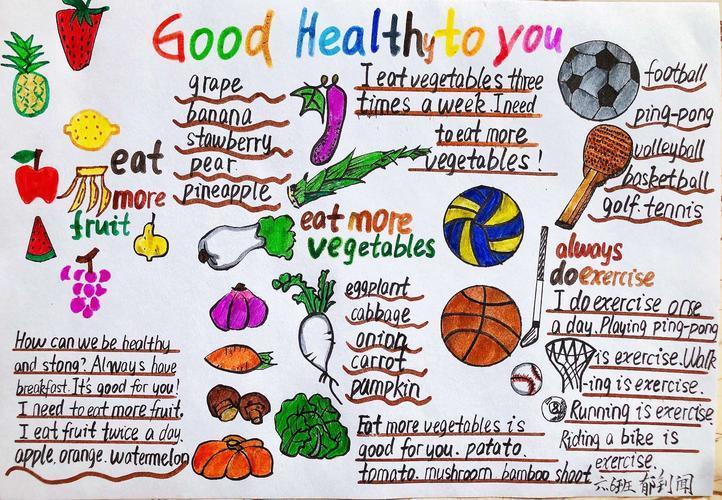 Good Healthy to you
grape
banana
stawberry
pear
pineapple
eat
more
fruit
I eat vegetables three
times a week. I need
to eat more
vegetables!
football
ping-pong
volleyball
basketball
golf. tennis
eat more
vegetables
eggplant
cabbage
onion
carrot
pumpkin
always
do exercise
I do exercise orse
a day. Playing ping-pong
is exercise. Walk
-ing is exercise.
Running is exercise
Riding a bike is
exercise.
How can we be healthy
and stong? Always have
breakfast. It's good for you!
I need to eat more fruit.
I eat fruit twice a day.
apple. orange. watermelon
Eat more vegetables is
good for you. patato.
tomato. mushroom bamboo shoot
六6班